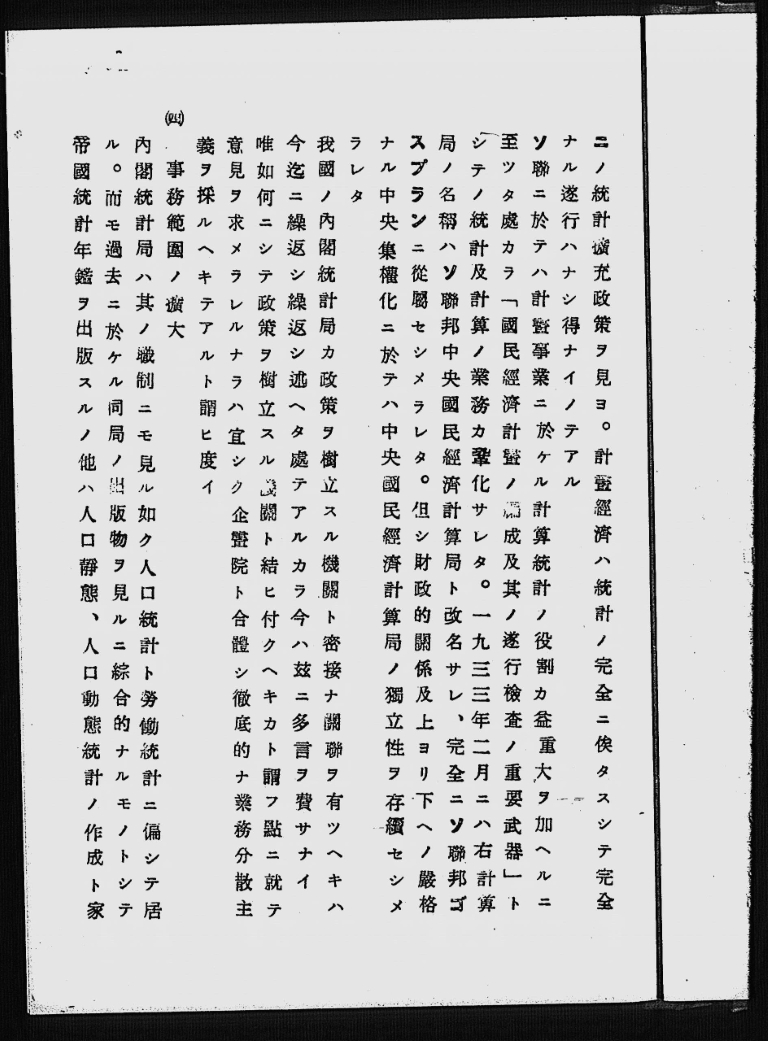 ニノ統計擴充政策ヲ見ヨ。計畫經濟ハ統計ノ完全ニ俟タスシテ完全
ナル遂行ハナシ得ナイノテアル
ソ聯ニ於テハ計畫事業ニ於ケル計算統計ノ役割カ益重大ヲ加ヘルニ
至ツタ處カラ「國民經濟計畫ノ編成及其ノ遂行檢査ノ重要武器」ト
シテノ統計及計算ノ業務カ鞏化サレタ。一九三三年二月ニハ右計算
局ノ名稱ハソ聯邦中央國民經濟計算局ト改名サレ、完全ニソ聯邦ゴ
スプランニ從屬セシメラレタ。但シ財政的關係及上ヨリ下ヘノ嚴格
ナル中央集權化ニ於テハ中央國民經濟計算局ノ獨立性ヲ存續セシメ
ラレタ
我國ノ內閣統計局カ政策ヲ樹立スル機關ト密接ナ關聯ヲ有ツヘキハ
今迄ニ繰返シ繰返シ述ヘタ處テアルカラ今ハ玆ニ多言ヲ費サナイ
唯如何ニシテ政策ヲ樹立スル機關ト結ヒ付クヘキカト謂フ點ニ就テ
意見ヲ求メラレルナラハ宜シク企畫院ト合體シ徹底的ナ業務分散主
義ヲ採ルヘキテアルト謂ヒ度イ
㈣ 事務範圍ノ擴大
內閣統計局ハ其ノ職制ニモ見ル如ク人口統計ト勞働統計ニ偏シテ居
ル。而モ過去ニ於ケル同局ノ出版物ヲ見ルニ綜合的ナルモノトシテ
帝國統計年鑑ヲ出版スルノ他ハ人口靜態、人口動態統計ノ作成ト家